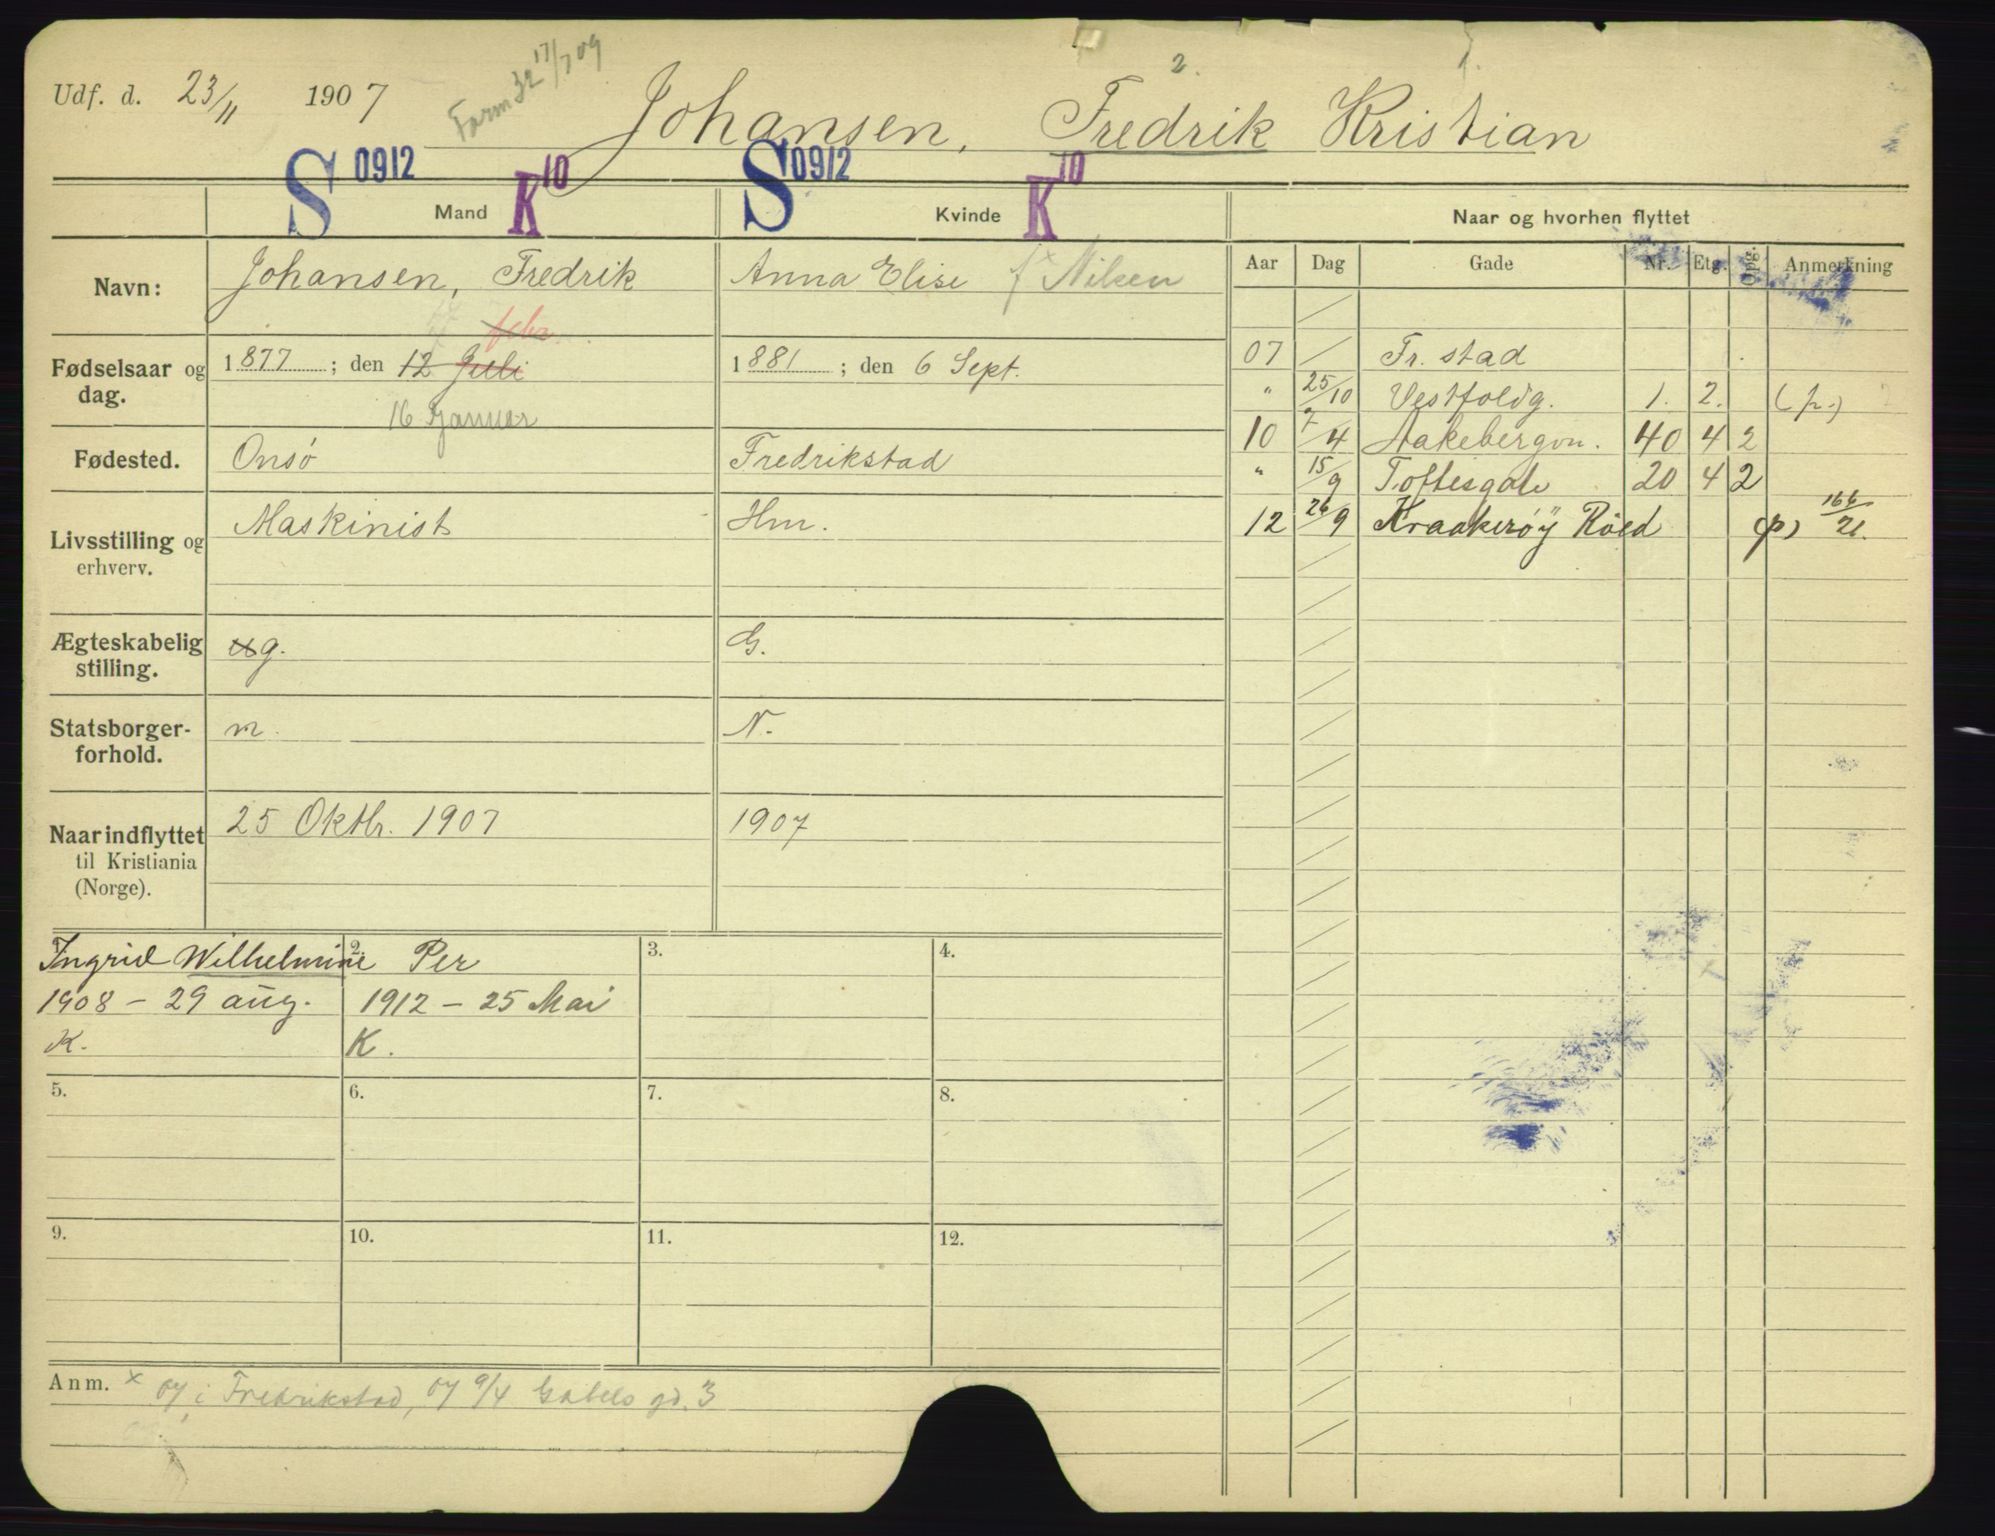 Udf. d. 23/11 1907
17/7 09
2. 1.
Johansen, Fredrik Kristian
S 0912 K 10 S 0912 K 10
Mand Kvinde Naar og hvorhen flyttet
Navn: Johansen, Fredrik Anna Elise f× Nilsen
Aar Dag Gade Nr. Etg. Opg. Anmerkning
febr.
Fødselsaar og dag. 1877; den 12 Juli 1881; den 6 Sept.
16 Januar
Fødested. Onsö Fredrikstad
Livsstilling og erhverv. Maskinist Hm.
Ægteskabelig stilling. ug. G.
Statsborger-forhold. n. N.
Naar indflyttet til Kristiania (Norge). 25 Oktbr. 1907 1907
07 Fr. stad
" 25/10 Vestfoldg. 1. 2. (p.)
10 7/4 Aakebergvn. 40 4 2
" 15/9 Toftesgate 20 4 2
12 26/9 Kraakerøy Röed (p) 166/21.
1. Ingrid Wilhelmine
1908 - 29 aug.
K.
2. Per
1912 - 25 Mai
K.
3.
4.
5.
6.
7.
8.
9.
10.
11.
12.
Anm. × 07 i Fredrikstad, 07 9/4 Gabels gd. 3